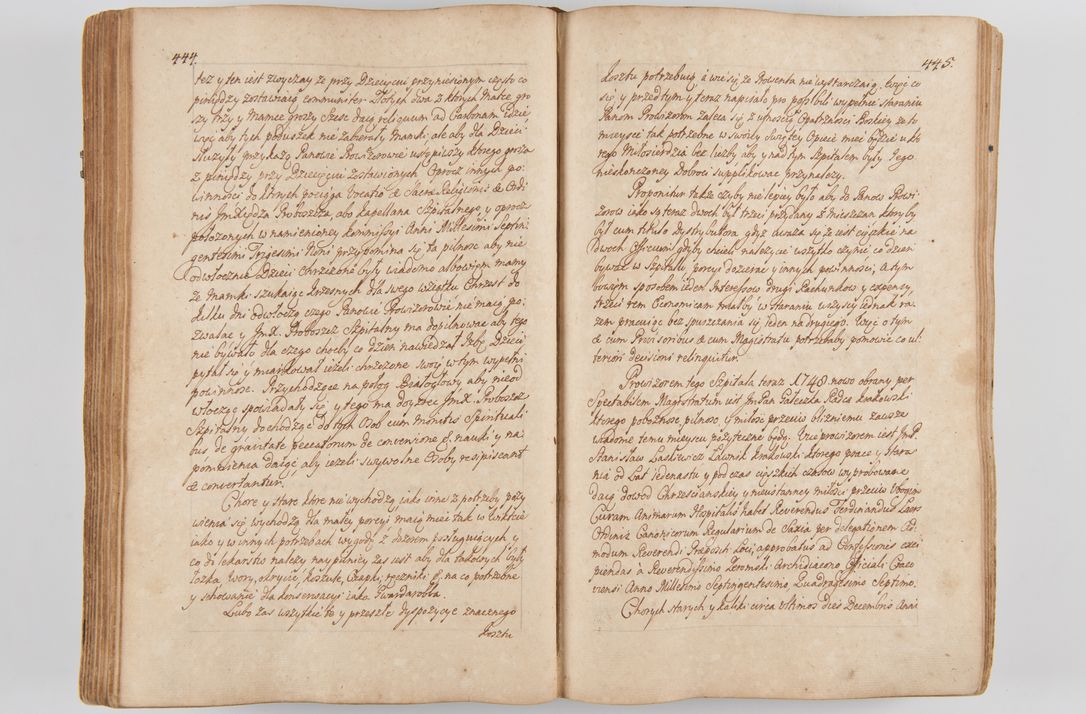 444.
też y ten iest zwyczay że przy Dziecięciu przyniesionym często co
pieniędzy zostawiaią communiter Złotych dwa z ktorych Matce gro
szy trzy y Mamce groszy Szesc daią reliquum ad Carbonam idzie
więc aby tych poduszek nie zabierały Mamki ale aby dla Dzieci
służyły przykażą Panowie Prowizorowie
z pieniędzy przy Dziecięciu zostawionych. Oprocz innych po
winnosci do ktorych pociąga Vocatio & Sacra Religionis & Ordi
nis JmXiędza Proboszcza, abo Kapellana Szpitalnego y oprocz
położonych w namienioney kommissyi Anni Millesimi Septin
gentesimi Trigesimi Noni przypomina się ta pilnosc aby nie
odwłocznie Dzieci chrzczone były wiadomo albowiem mamy
że Mamki szukaiąc krzesnych dla swego wziętku Chrzest do
kilku dni odwłoczą czego Panowie Prowizorowie nie maią po,,
zwalac y JmX. Proboszcz Szpitalny ma dopilnowac aby tego
nie bywało dla czego chocby co dzien nawiedzał Izbę Dzieci
pytał się y miarkował ieżeli chrzczone swoię w tym wypełni
powinnosc. Przychodzące na połog Białogłowy aby nieod
włocząc spowiadały się y tego ma doyzrec JmX. Proboszcz
Szpitalny dochodząc do tych Osob cum monitis Spirituali
bus de gravitate peccatorum de conversione &c. nauki y na,
pomnienia daiąc aby ieżeli swywolne Osoby resipiscant
& convertantur.
Chore y stare ktore nie wychodzą, iako inne z potrzeby poży
wienia się wychodzą dla małey porcyi maią miec tak w wikcie
iako y w innych potrzebach wygodę z dozorem posługuiących y
co do lekarstw należy naypilniey zas iest aby dla takowych były
łożka, wory, okrycie koszule, czapki, ręczniki &c. na co potrzebne
y schowanie dla konserwacyi iako Gwardaroba.
Lubo zas wszytkie te y przeszłe dyspozycye znacznego
kosztu
445.
kosztu potrzebuią a wie się że Prowenta nie wystarczaią. Więc co
się y przed tym y teraz napisało pro possibili wypełnic staraniu
Panom Prowizorom zaleca się z ufnoscią Opatrznosci Boskiey że to
mieysce tak potrzebne w swoiey Swiętey Opiece miec będzie u kto
rego Miłosierdzia bez liczby aby y nad tym Szpitalem były Jego
nieskonczoney Dobroci supplikowac przynależy.
Proponitur także czyby nie lepiey było aby do Panow Prowi
zorow iako są teraz dwoch był trzeci przydany z Mieszczan ktoryby
był cum titulo Dystrybutora gdyż uważa się że iest ciężkie na
Dwoch Officium gdyby chcieli należycie wszytko czynic co dzien
bywac w Szpitalu, porcyi dozierac y innych powinnosci, a tym
bowiem sposobem ieden Interessow drugi Rachunkow y expensy
trzeci tem Oeconomicam miałby w staraniu wszyscy iednak ra,
zem pracuiąc bez spuszczania się ieden na drugiego. Więc o tym
& cum Provisoribus & cum Magistratu potrzebaby pomowic co ul
teriori decisioni relinquitur.
Prowizorem tego Szpitala teraz 1748. nowo obrany per
Spectabilem Magistratum iest Jm Pan Gałeczka Radca krakowski
ktorego pobożnosc, pilnosc y miłosc przeciw bliźniemu zawsze
wiadome temu mieyscu pożyteczne będą. Vice prowizorem iest JmP.
Stanisław Laskiewicz Ławnik krakowski ktorego praca y stara
nia od Lat iedenastu y pod czas cięszkich czasow wyprobowane
daią dowod Chrzescianskiey y nieustanney miłosci przeciw Ubogim
Curam Animarum Hospitalis habet Reverendus Ferdinandus
Ordinis Canonicorum Regularium de Saxia per delegationem Ad
modum Reverendi Praepositi Loci, approbatus ad Confessiones exci
piendas à Reverendissimo Zeromski Archidiacono Officiali Craco
viensi Anno Millesimo Septingentesimo Quadragesimo Septimo.
Chorych starych y kalek circa ultimos dies Decembris Anni